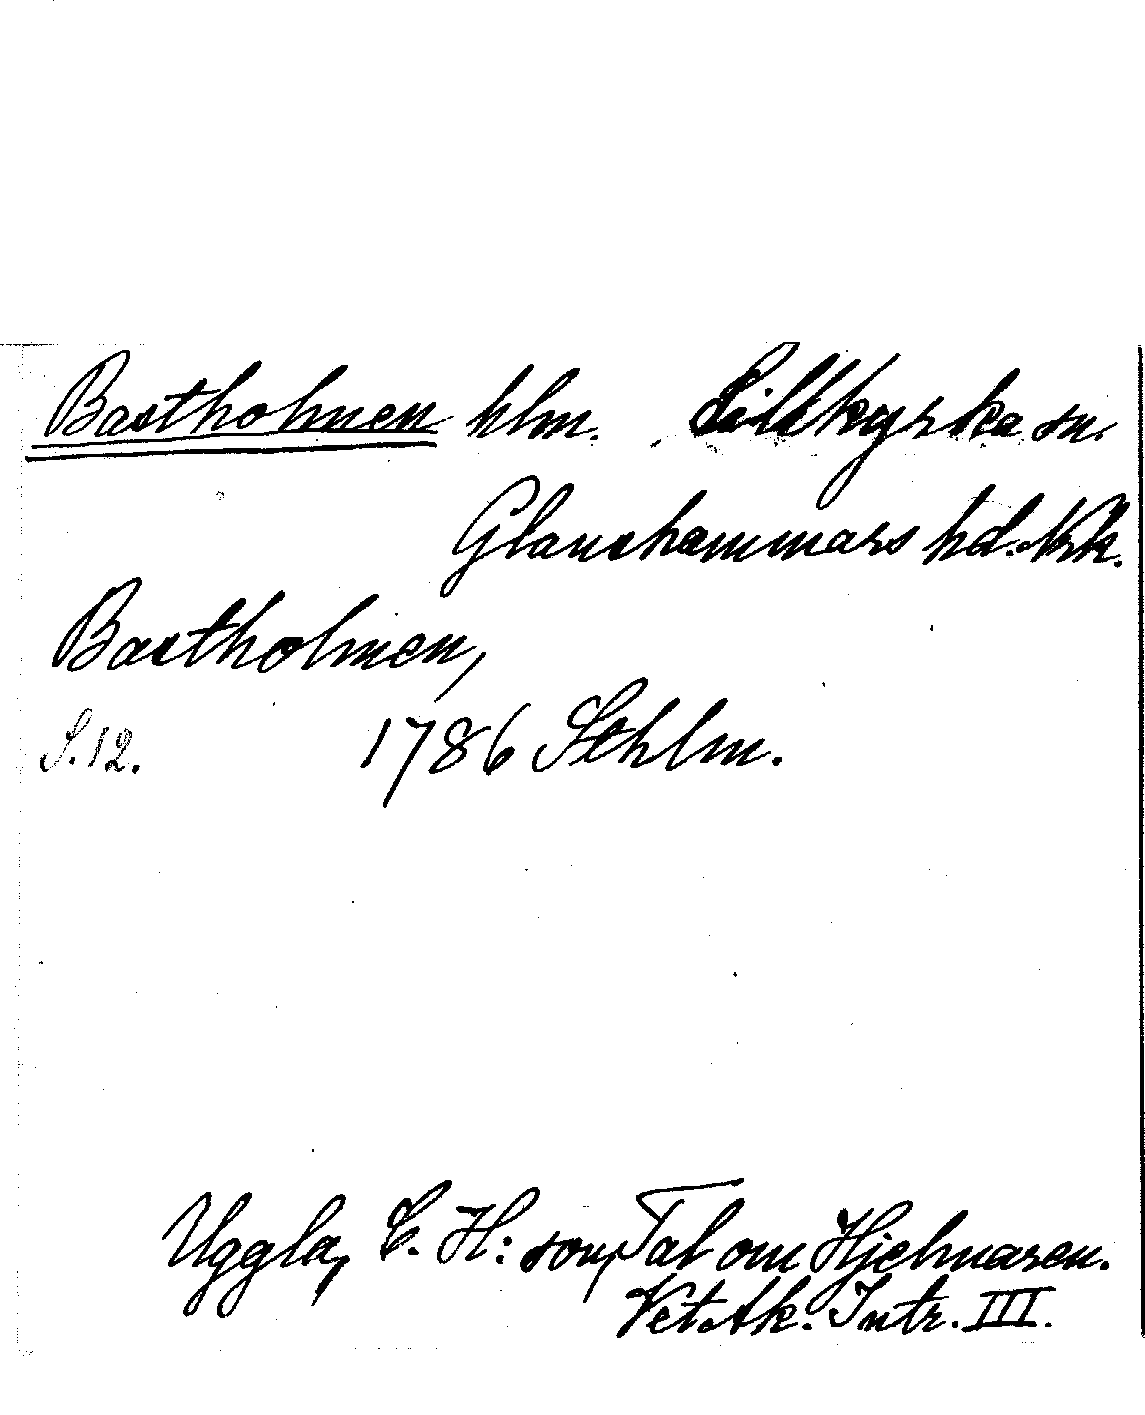 Bastholmen hlm. Lillkyrka sn.
Glanshammars hd. Nrk.
Bastholmen,
S. 12. 1786 Sthlm.
Uggla, C. H:son, Tal om Hjelmaren.
Vet. Ak. Intr. III.